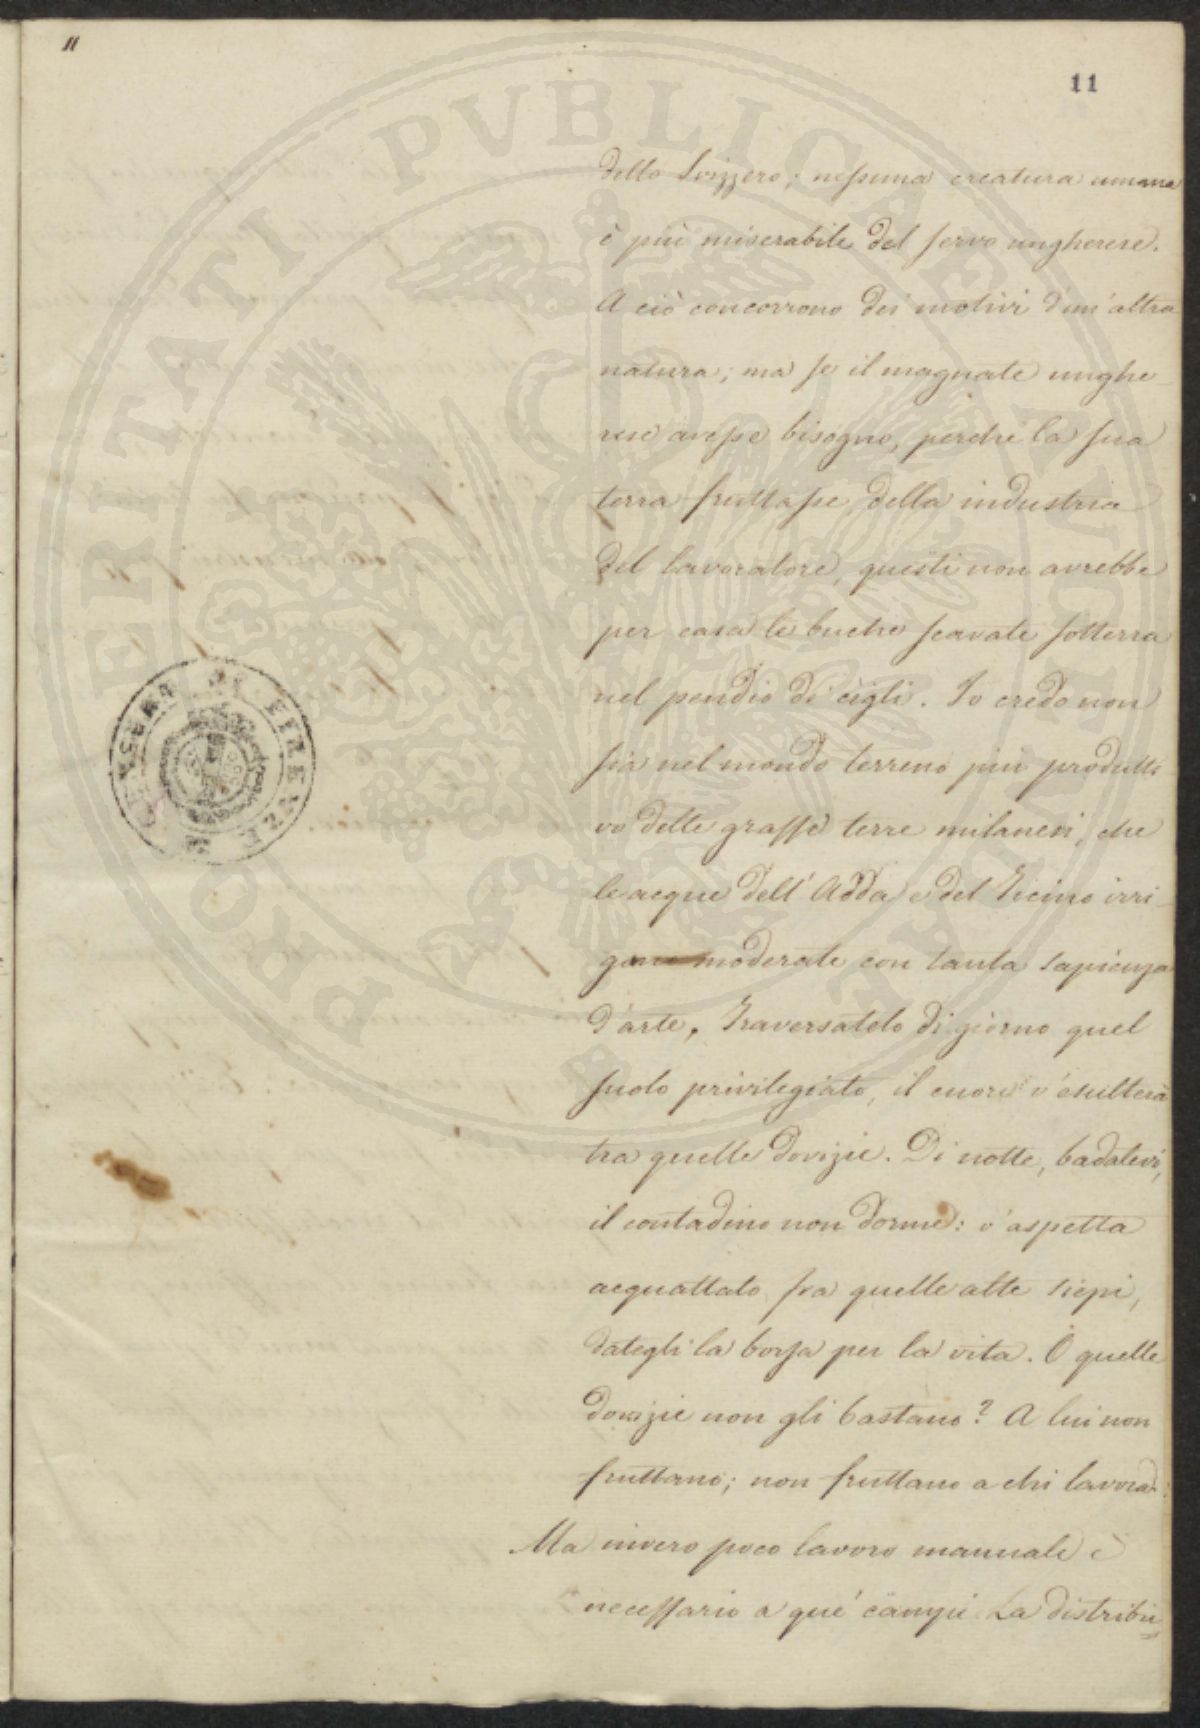 11
11
dello Svizzero; nessuna creatura umana
è più miserabile del servo ungherese.
A ciò concorrono dei motivi d'un'altra
natura; ma se il magnate unghe-
rese avesse bisogno, perchè la sua
terra fruttasse, della industria
del lavoratore, questi non avrebbe
per casa le buche scavate sotterra
nel pendio di cigli. Io credo non
sia nel mondo terreno più produtti
vo delle grasse terre milanesi, che
le acque dell'Adda e del Ticino irri-
gano moderate con tanta sapienza
d'arte. Traversatelo di giorno quel
suolo privilegiato, il cuore v'esulterà
tra quelle dovizie. Di notte, badatevi,
il contadino non dorme: v'aspetta
acquattato fra quelle alte siepi,
dategli la borsa per la vita. O quelle
dovizie non gli bastano? A lui non
fruttano; non fruttano a chi lavora.
Ma invero poco lavoro manuale è
necessario a que' campi. La distribu=
PVBLICAE VTILITATI
PROSPERITATI
FIRENZE